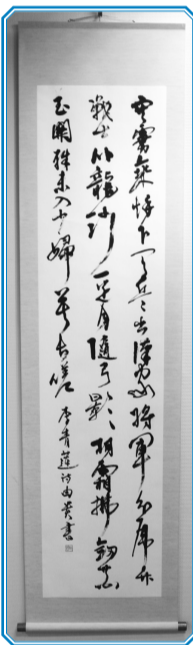 塞虜乘秋下天兵出漢家將軍分虎竹
戰士臥龍沙邊月隨弓影胡霜拂劍花
玉關殊未入少婦莫長嗟李青蓮詩書